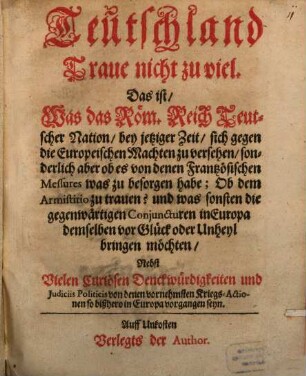 Teutschland
Traue nicht zu viel.
Das ist/
Was das Röm. Reich Teut-
scher Nation/ bey jetziger Zeit/ sich gegen
die Europeischen Machten zu versehen/ son-
derlich aber ob es von denen Frantzösischen
Messures was zu besorgen habe; Ob dem
Armistitio zu trauen? und was sonsten die
gegenwärtigen Conjuncturen in Europa
demselben vor Glück oder Unheyl
bringen möchten/
Nebst
Vielen Curiösen Denckwürdigkeiten und
Judiciis Politicis von denen vornehmsten Kriegs-Actio-
nen so bißhero in Europa vorgangen seyn.
Auff Unkosten
Verlegts der Author.